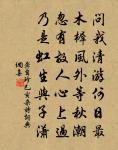 問我清游何日最
木樨風外等秋潮
忽有故人心上過
乃是虹生與子瀟